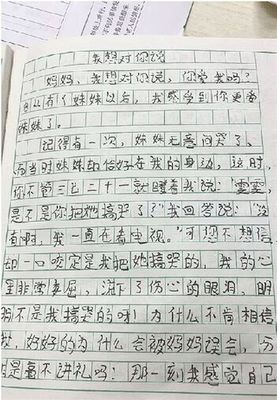 我想对你说
妈妈，我想对你说，你爱我吗？
自从有了妹妹以后，我感受到你更爱
妹妹了。
记得有一次，妹妹无意间哭了，
而当时妹妹却恰好在我的身边，这时，
你不管三七二十一就瞪着我说：“雯雯
是不是你把她搞哭了？”我回答说：“没
有啊，我一直在看电视。”可您不想信
却一口咬定是我把她搞哭的，我的心
里非常委屈，流下了伤心的眼泪，明
明不是我搞哭的呀！为什么不肯相信
我，好好的为什么会被妈妈误会，
是蛮不讲礼吗？那一刻我感觉自己